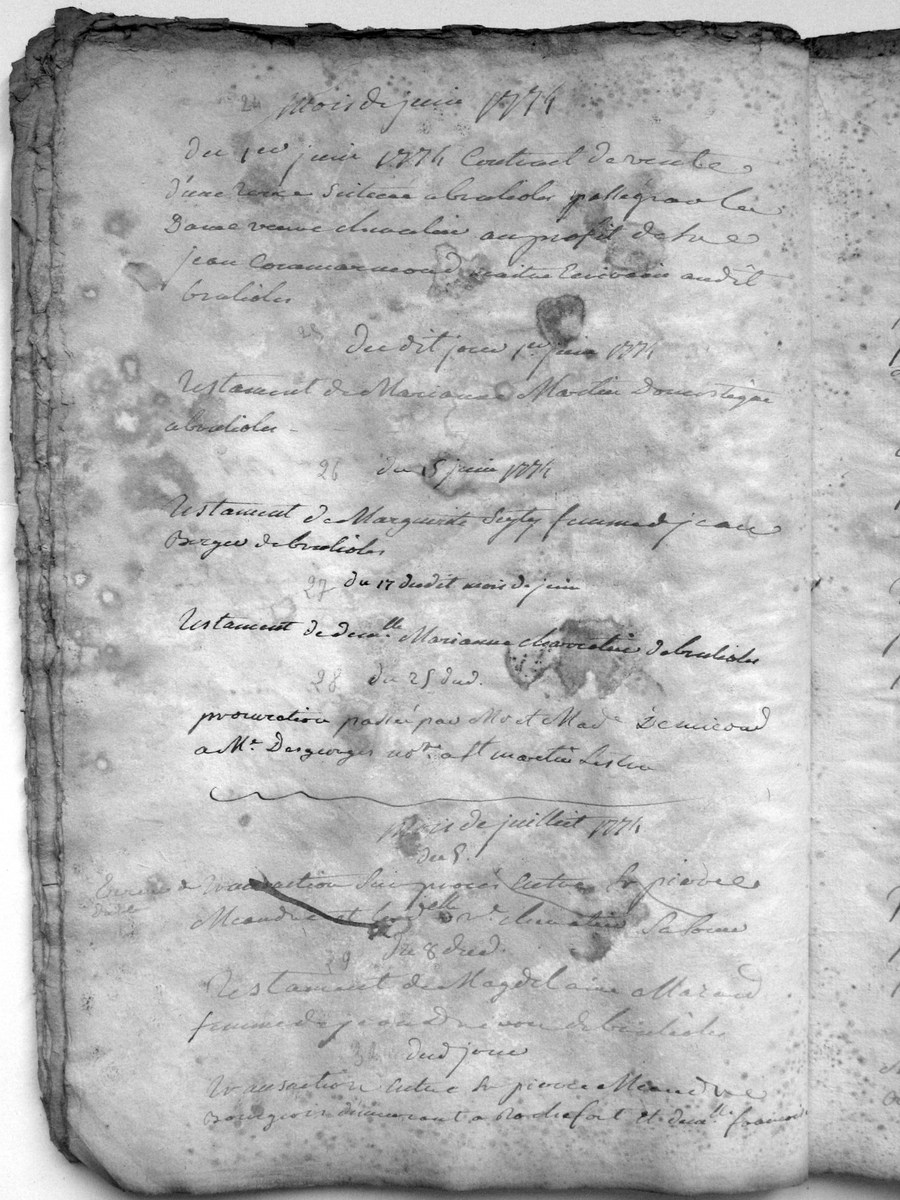 24 mois de juin 1774
Du 1er juin 1774 Contract de vente
d'une terre scituee a brulioles passé par la
Dame veuve chevalier au profit de sr
jean Commarmond maitre Ecrivain audit
brulioles
25 du dit jour 1er juin 1774
Testament de Marianne Martin Domestique
a brulioles
26 du 15 juin 1774
Testament de Marguerite femme de jean
Berger de brulioles
27 du 17 dudit mois de juin
Testament de demlle Marianne de brulioles
28 du 25 dud.
procuration passée par Mr et Made
a Mr Desgeorges nore a st martin Lestra
mois de juillet 1774
du 5.
transaction sur procés Entre Sr pierre
Meandre et sa soeur
29 du 8 dud.
Testament de Magdelaine
femme de jean de brulioles
dud jour
transaction entre Sr pierre Meandre
Bourgeois demeurant a Rochefort et demlle